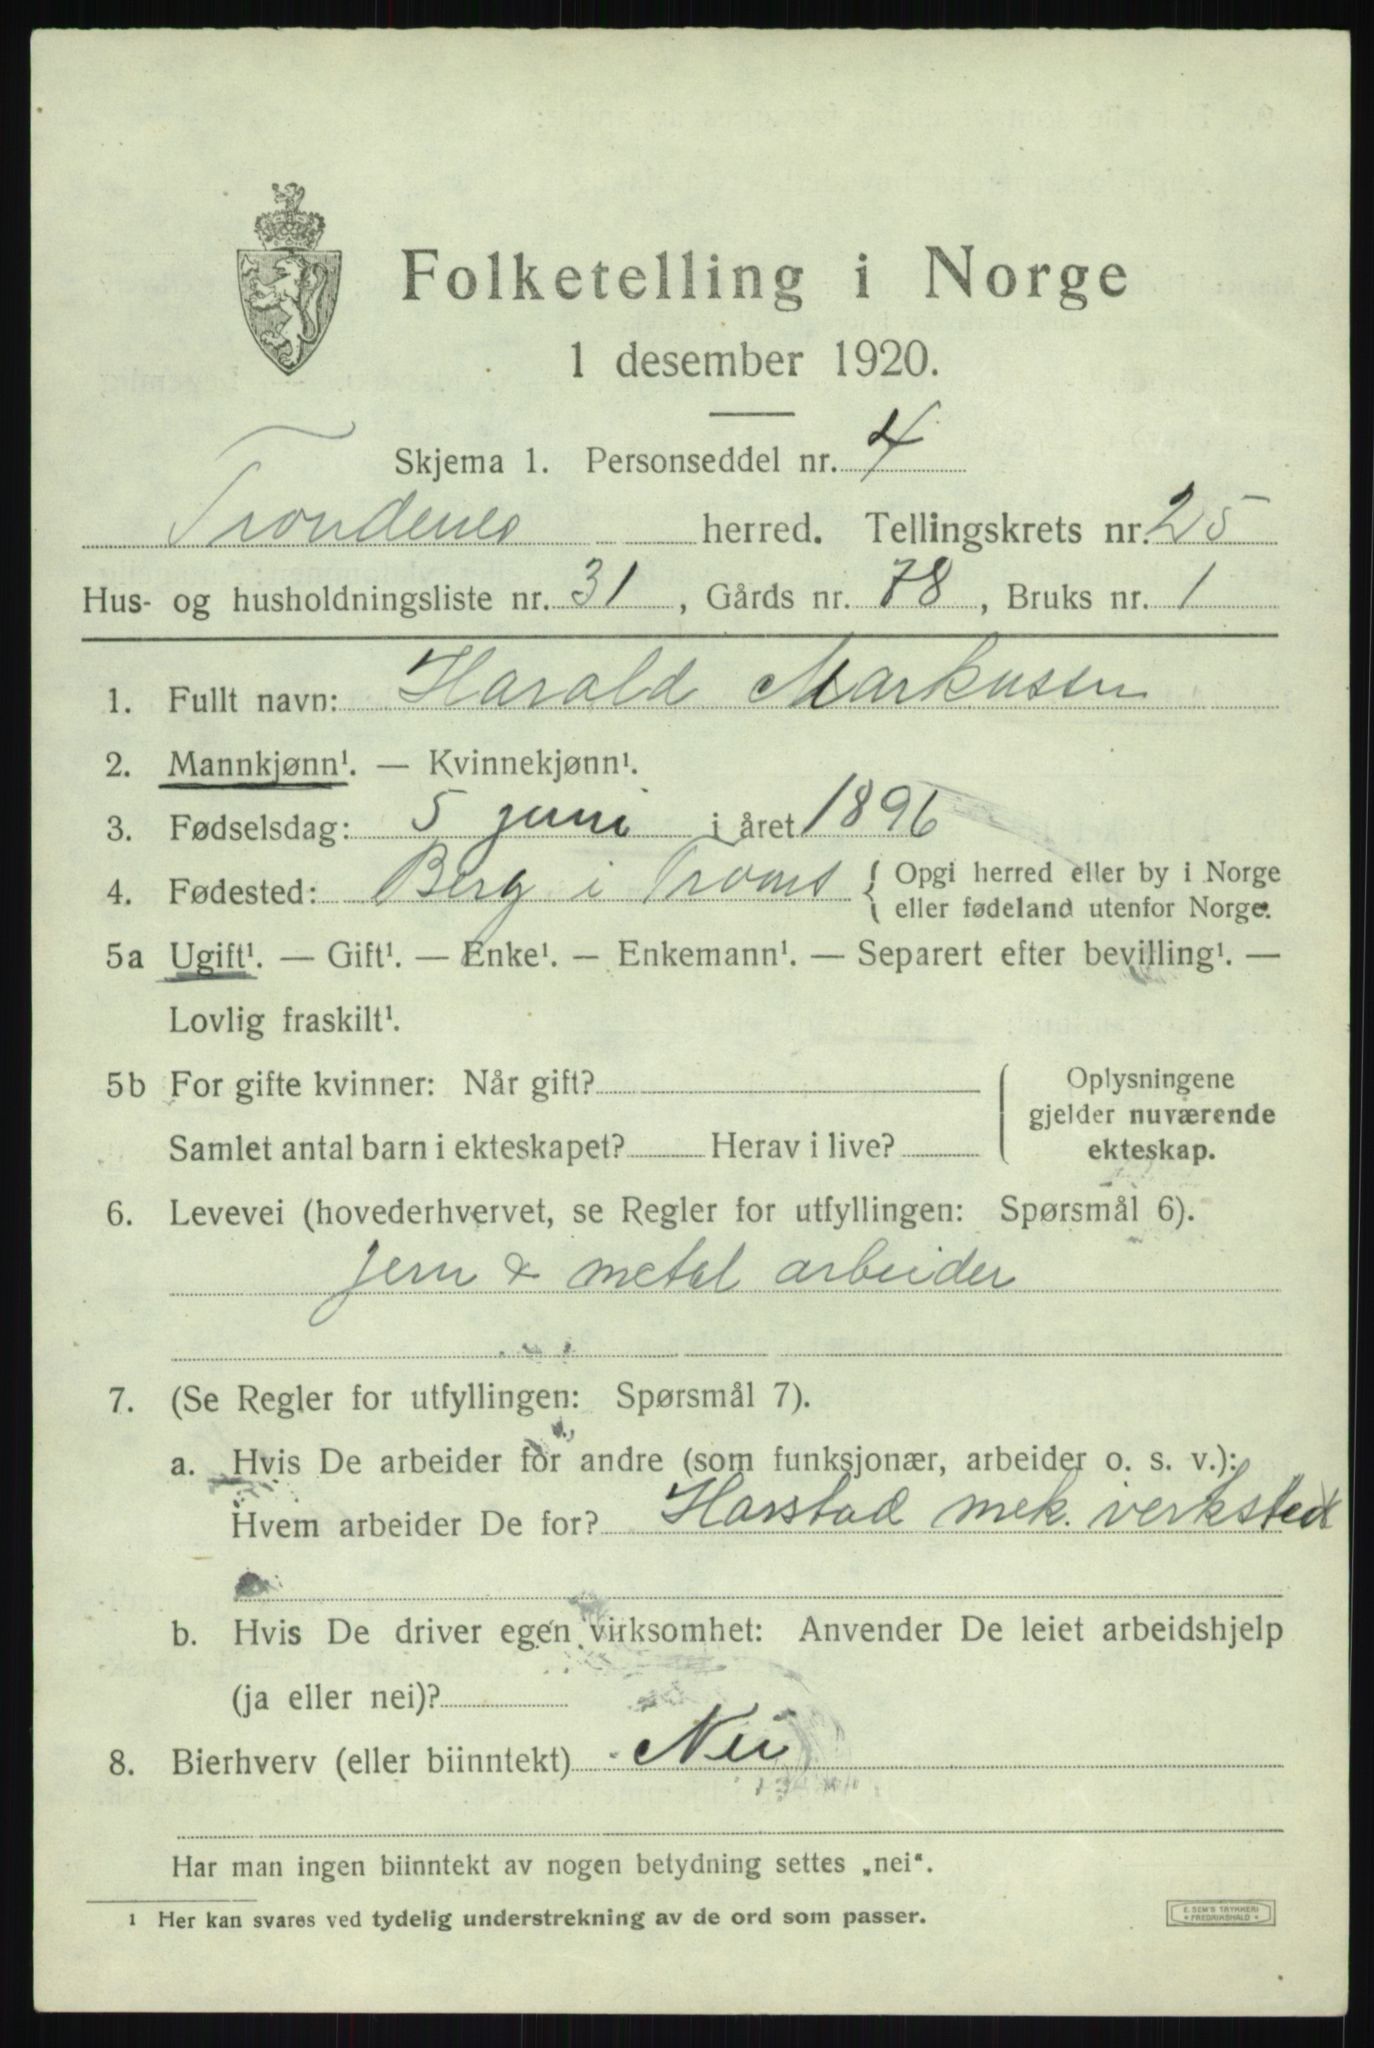 Folketelling i Norge
1 desember 1920.
Skjema 1. Personseddel nr. 4
Trondenes herred. Tellingskrets nr. 25
Hus- og husholdningsliste nr. 31, Gårds nr. 78, Bruks nr. 1
1. Fullt navn: Harald Markussen
2. Mannkjønn¹. — Kvinnekjønn¹.
3. Fødselsdag: 5 juni i året 1896
4. Fødested: Berg i Troms { Opgi herred eller by i Norge
eller fødeland utenfor Norge.
5a Ugift¹. — Gift¹. — Enke¹. — Enkemann¹. — Separert efter bevilling¹. —
Lovlig fraskilt¹.
5b For gifte kvinner: Når gift?
Samlet antal barn i ekteskapet? Herav i live?
Oplysningene
gjelder nuværende
ekteskap.
6. Levevei (hovederhvervet, se Regler for utfyllingen: Spørsmål 6).
Jern & metal arbeider
7. (Se Regler for utfyllingen: Spørsmål 7).
a. Hvis De arbeider for andre (som funksjonær, arbeider o. s. v.):
Hvem arbeider De for? Harstad mek. verksted
b. Hvis De driver egen virksomhet: Anvender De leiet arbeidshjelp
(ja eller nei)?
8. Bierhverv (eller biinntekt) Nei
Har man ingen biinntekt av nogen betydning settes „nei“.
1 Her kan svares ved tydelig understrekning av de ord som passer.
E. SEM'S TRYKKERI
FREDRIKSHALD